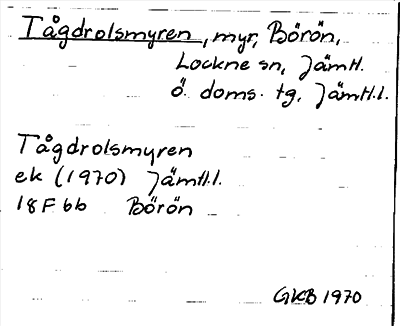 Tågdrolsmyren, myr, Börön,
Lockne sn, Jämtl.
Ö. doms. tg, Jämtl.l.
Tågdrolsmyren
ek (1970) Jämtl.l.
18F6b Börön
GKB 1970